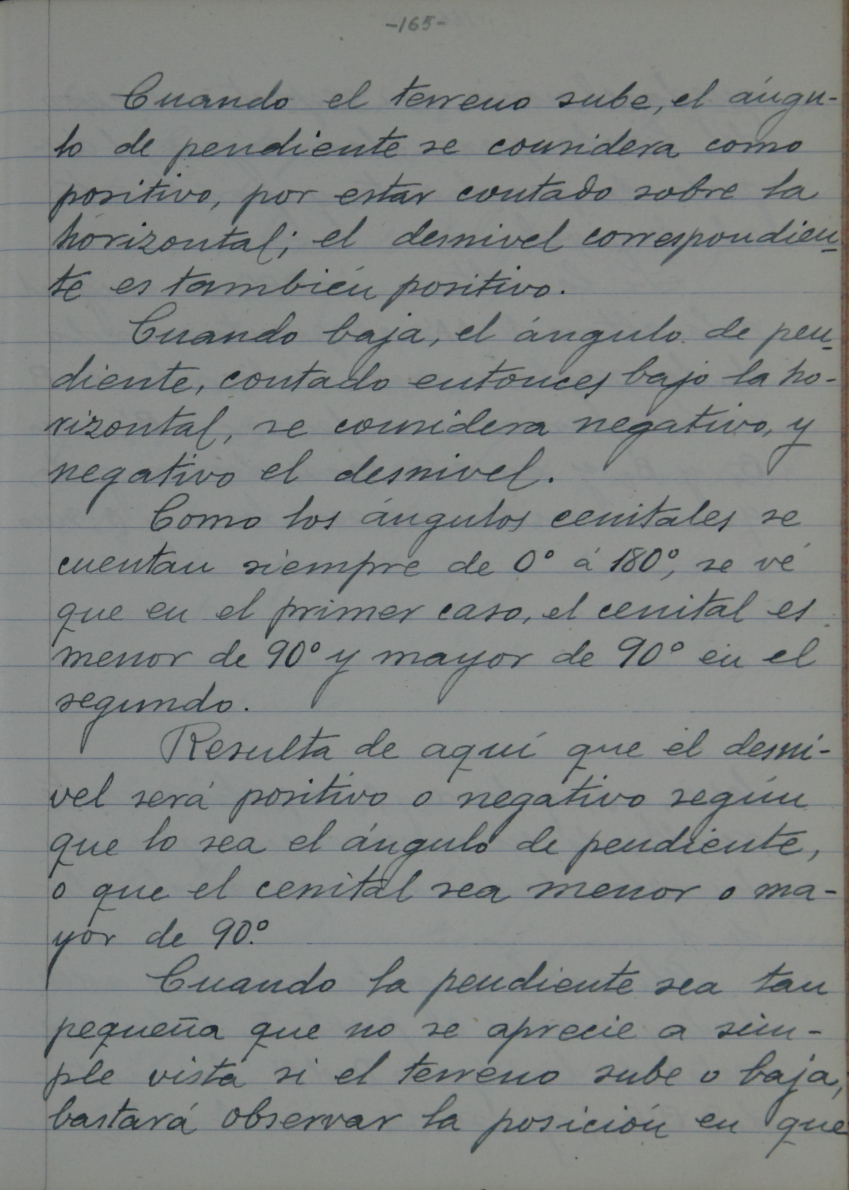 -165-
Cuando el terreno sube, el ángu-
lo de pendiente se considera como
positivo, por estar contado sobre la
horizontal; el desnivel correspondien-
te es también positivo.
Cuando baja, el ángulo de pen-
diente, contado entonces bajo la ho-
rizontal, se considera negativo, y
negativo el desnivel.
Como los ángulos cenitales se
cuentan siempre de 0° á 180°, se vé
que en el primer caso, el cenital es
menor de 90° y mayor de 90° en el
segundo.
Resulta de aquí que el desni-
vel será positivo o negativo según
que lo sea el ángulo de pendiente,
o que el cenital sea menor o ma-
yor de 90°.
Cuando la pendiente sea tan
pequeña que no se aprecie a sim-
ple vista si el terreno sube o baja,
bastará observar la posición en que